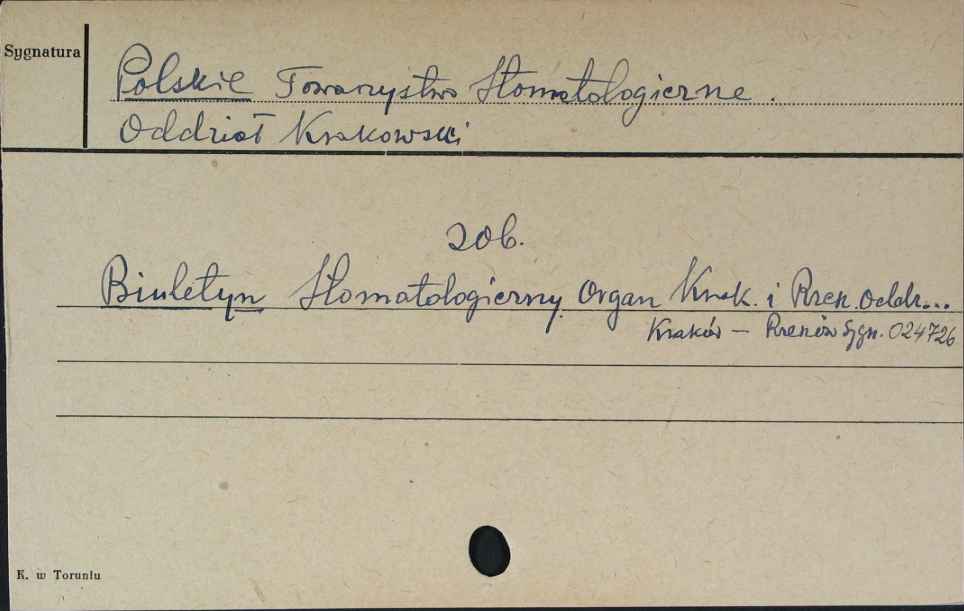 Sygnatura
Polskie Towarzystwo Stomatologiczne.
Oddział Krakowski
zob.
Biuletyn Stomatologiczny. Organ Krak. i Rzesz. Oddz...
Kraków – Rzeszów Sygn. 024726
K. w Toruniu